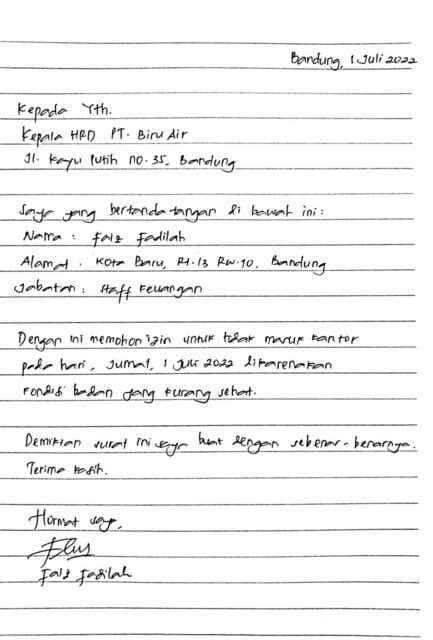 Bandung, 1 Juli 2022
Kepada Yth.
Kepala HRD PT. Biru Air
Jl. Kayu Putih no. 35, Bandung
Saya yang bertanda tangan di bawah ini :
Nama : Faiz Fadilah
Alamat : Kota Baru, Rt.13 Rw.10, Bandung
Jabatan : Staff Keuangan
Dengan ini memohon izin untuk tidak masuk kantor
pada hari, Jumat, 1 Juli 2022 dikarenakan
kondisi badan yang kurang sehat.
Demikian surat ini saya buat dengan sebenar-benarnya.
Terima kasih.
Hormat saya,
Faiz Fadilah